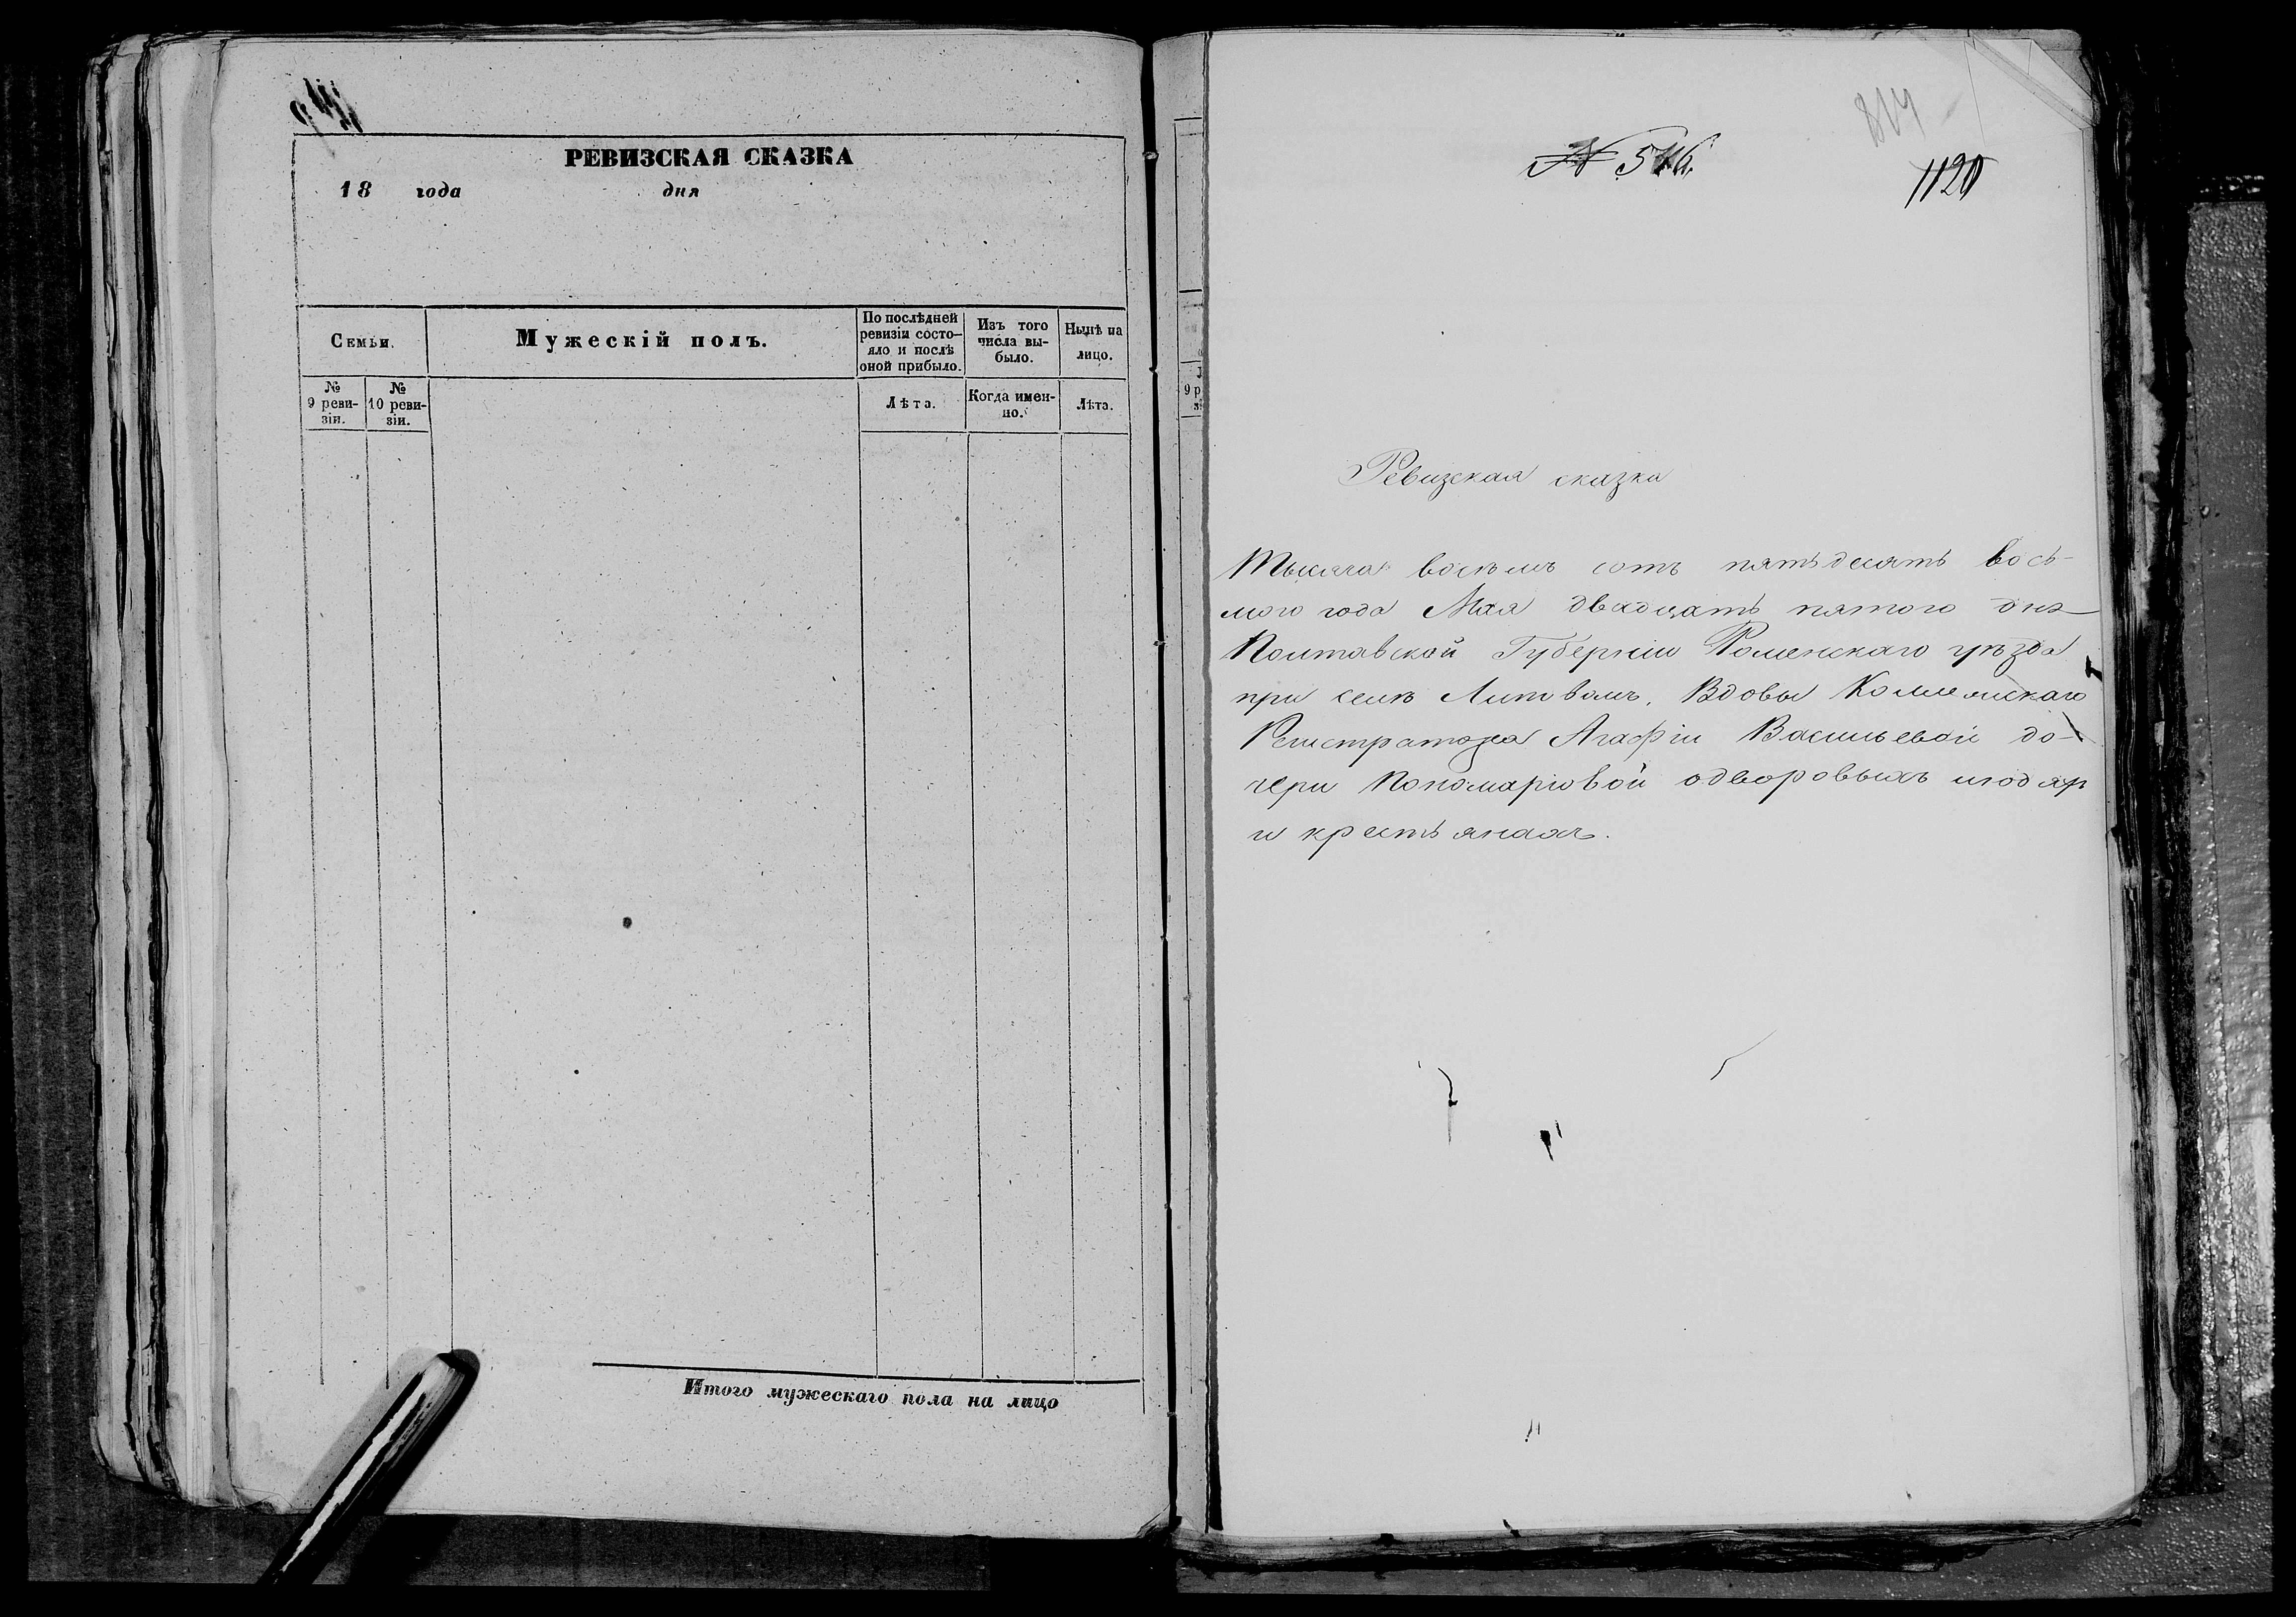 РЕВИЗСКАЯ СКАЗКА
18 года дня
Семьи.
Мужескій полъ.
По послѣдней
ревизіи состо-
яло и послѣ
оной прибыло.
Изъ того
числа вы-
было.
Нынѣ на
лицо.
№
9 реви-
зіи.
№
10 реви-
зіи.
Лѣта.
Когда имен-
но.
Лѣта.
Итого мужескаго пола на лицо
814
1120
Ревизская сказка
Тысяча восемь сотъ пятьдесятъ вось-
мого года Мая двадцать пятого дня
Полтавской Губерніи Роменскаго уѣзда
при селѣ Литвѣ... Вдовы Коллежскаго
Регистратора Агафіи Васильевой до-
чери Пономарiовой одворовыхъ людяхъ
и крестьянахъ.